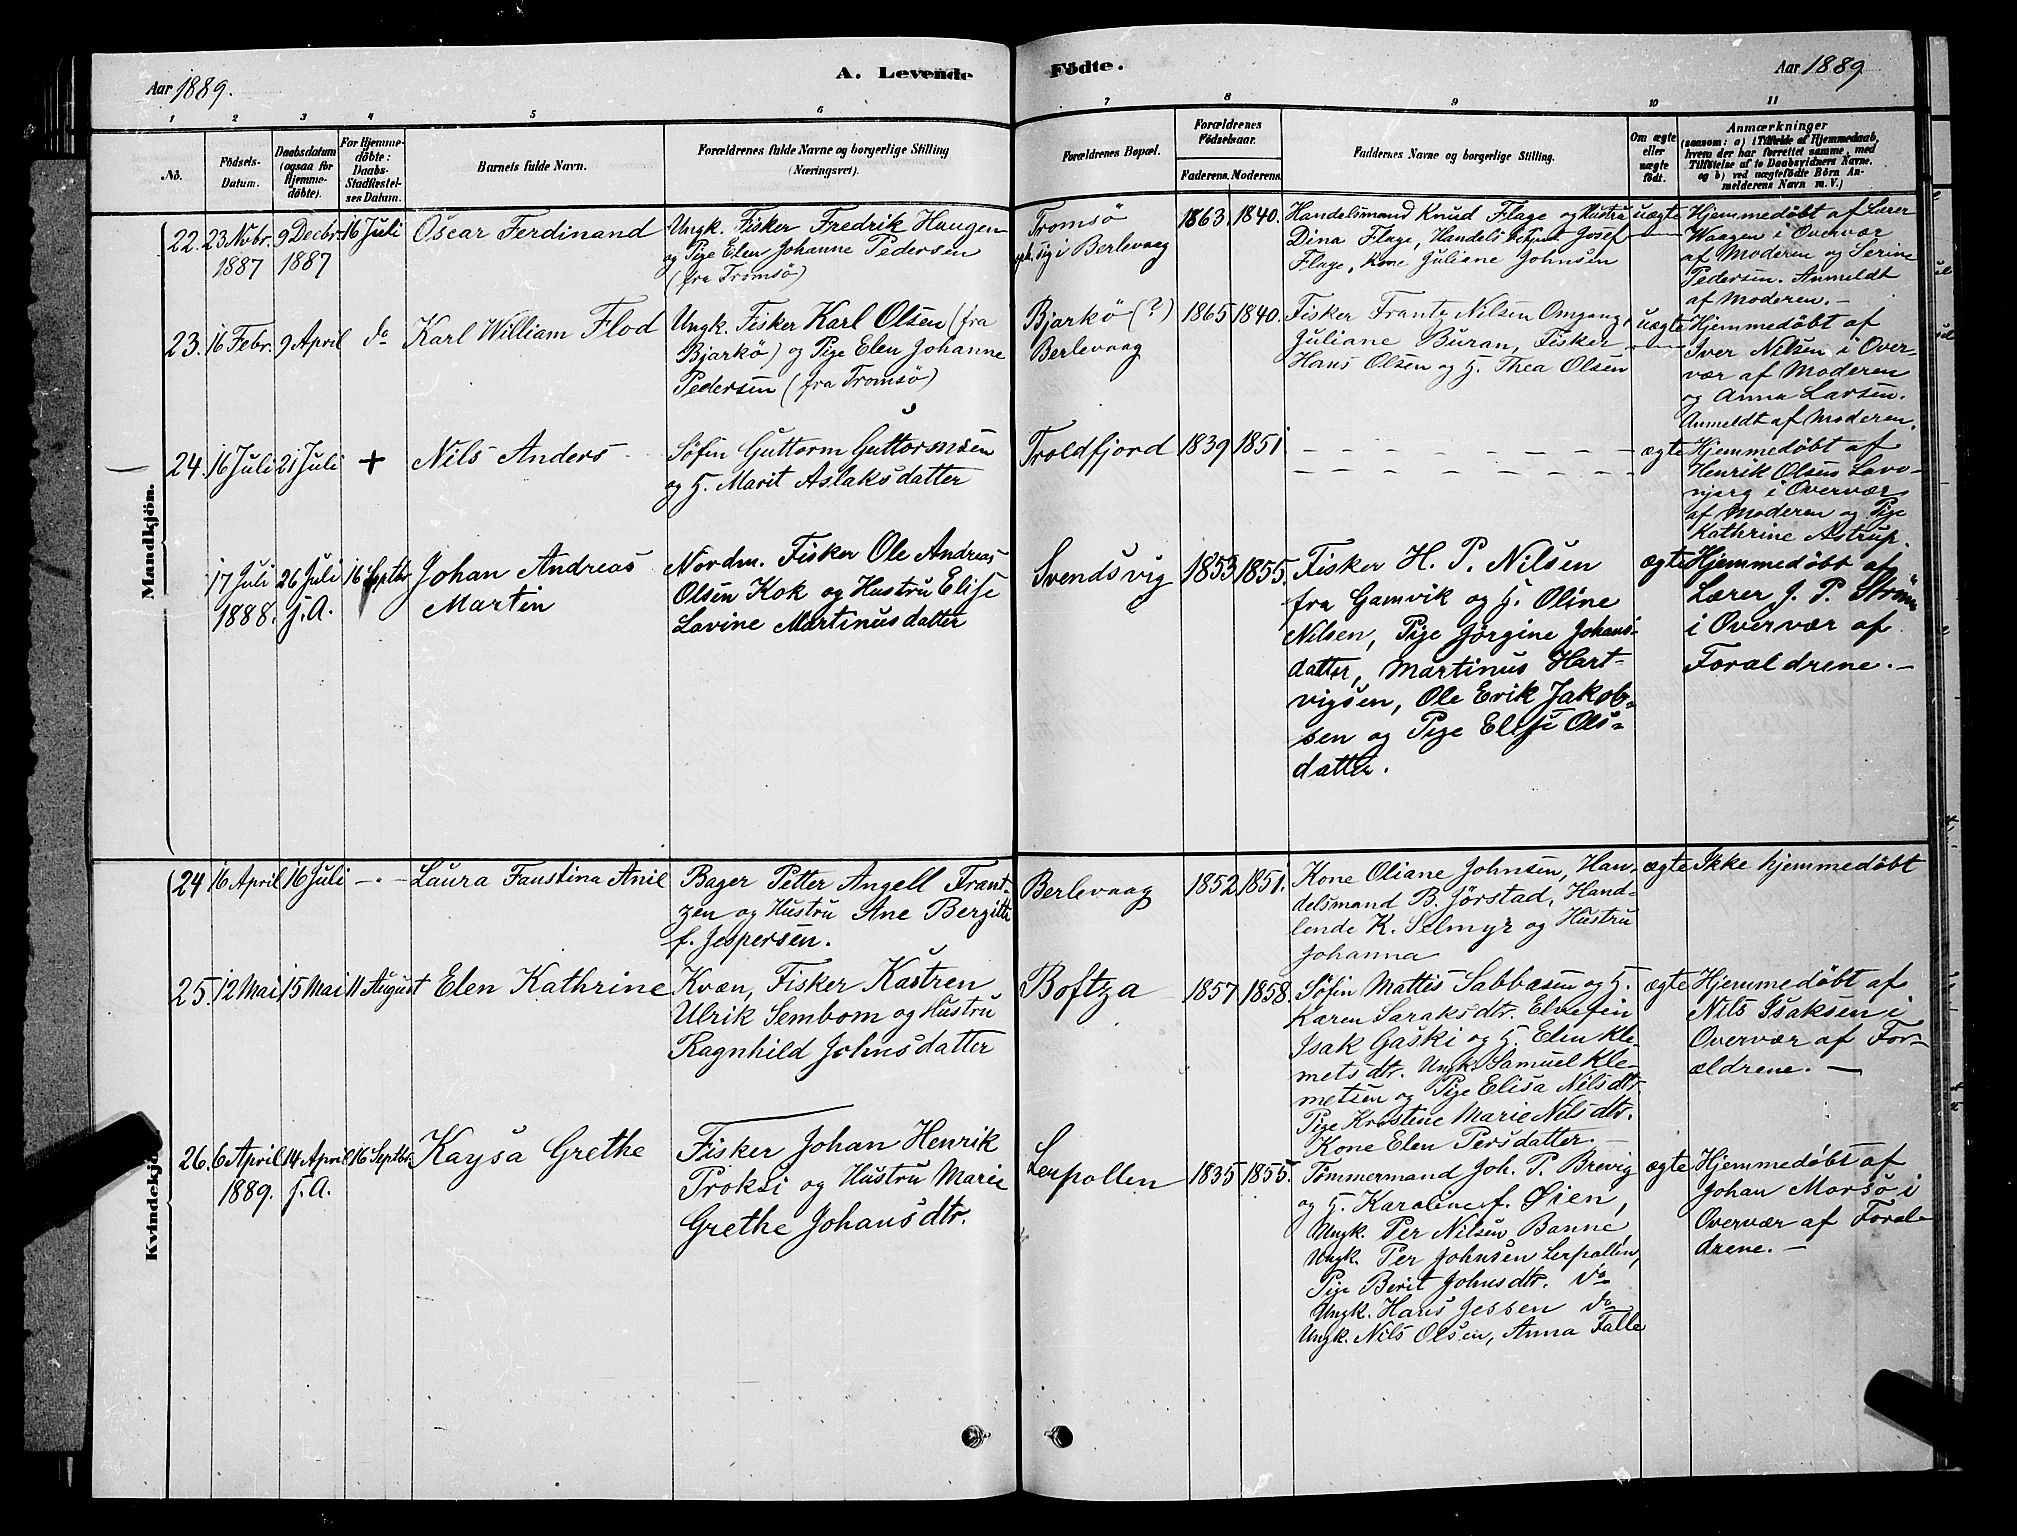 Aar 1889.
A. Levende
Födte.
Aar 1889
1 2 3 4 5 6
7 8 9 10 11
No.
Födsels-
Datum.
Daabsdatum
(ogsaa for
Hjemme-
döbte).
For Hjemme-
döbte:
Daabs-
Stadfæstel-
ses Datum.
Barnets fulde Navn.
Forældrenes fulde Navne og borgerlige Stilling
(Næringsvei).
Forældrenes Bopæl.
Forældrenes
Födselsaar.
Faderens. Moderens.
Faddernes Navne og borgerlige Stilling.
Om ægte
eller
uægte
födt.
Anmærkninger
(saasom: a) i Tilfælde af Hjemmedaab,
hvem der har forrettet samme, med
Tilföielse af to Daabsvidners Navne,
og b) ved uægtefödte Börn An-
melderens Navn m. V.)
Mandkjön.
22. 23 Novbr.
1887
9 Decbr.
1887
16 Juli
Oscar Ferdinand
Ungk. Fisker Fredrik Haugen
og Pige Elen Johanne Pedersen
(fra Tromsö)
Tromsö
oph. sig i Berlevaag
1863. 1840.
Handelsmand Knud Flage og Hustru
Dina Flage, Handelsbetjent Josef
Flage, Kone Juliane Johnsen
uægte
Hjemmedøbt af Lærer
Waagen i Overvær
af Moderen og Serine
Pedersen. Anmeldt
af Moderen.-
23. 16 Febr. 9 April do
Karl William Flod
Ungk. Fisker Karl Olsen (fra
Bjarkö) og Pige Elen Johanne
Pedersen (fra Tromsö)
Bjarkö (?)
Berlevaag
1865 1840.
Fisker Frantz Nilsen Omgang,
Juliane Buran, Fisker
Hans Olsen og H. Thea Olsen
uægte
Hjemmedøbt af
Iver Nilsen i Over-
vær af Moderen
og Anna Larsen.
Anmeldt af Moderen.
24. 16 Juli 21 Juli +
Nils Anders
Søfin Guttorm Guttormsen
og H. Marit Aslaksdatter
Troldfjord
1839 1851
ægte
Hjemmedøbt af
Henrik Olsen Lavo-
njarg i Overvær
af Moderen og Pige
Kathrine Astrup.
17 Juli
1888.
26 Juli
f. A.
16 Septbr.
Johan Andreas
Martin
Nordm. Fisker Ole Andreas
Olsen Kok og Hustru Elise
Lavine Martinusdatter
Svendsvig
1853 1855.
Fisker H. P. Nilsen
fra Gamvik og H. Oline
Nilsen, Pige Jörgine Johans-
datter, Martinus Hart-
vigsen, Ole Erik Jakob-
sen og Pige Elise Ols-
datter.
ægte
Hjemmedøbt af
Lærer J. P. Ström
i Overvær af
Forældrene.-
Kvindekjön
24 16 April 16 Juli -"-
Laura Faustina Anil
Bager Petter Angell Frant-
zen og Hustru Ane Bergitte
f. Jespersen.
Berlevaag
1852 1851.
Kone Oliane Johnsen, Han-
delsmand B. Jörstad, Hand-
lende K. Selmyr og Hustru
Johanna
ægte
Ikke hjemmedøbt
25. 12 Mai 15 Mai 11 August
Elen Kathrine
Kvæn, Fisker Kastren
Ulrik Sembom og Hustru
Ragnhild Johnsdatter
Boftza
1857 1858.
Søfin Mattis Sabbasen og H.
Karen Saraksdtr. Elvefin
Isak Gaski og H. Elen Kle-
metsdtr. Ungk. Samuel Kle-
metsen og Pige Elisa Nilsdtr.
Pige Kristine Marie Nilsdtr.
Kone Elen Persdatter.-
ægte
Hjemmedøbt af
Nils Isaksen i
Overvær af For-
ældrene. -
26. 6 April
1889.
14 April
f. A.
16 Septbr.
Kaysa Grethe
Fisker Johan Henrik
Proksi og Hustru Marie
Grethe Johansdtr.
Leirpollen
1835 1855.
Tømmermand Joh. P. Brevig
og H. Karoline f. Øien,
Ungk. Per Nilsen Banne,
Ungk. Per Johnsen Lerpollen,
Pige Berit Johnsdtr. do
Ungk. Hans Jessen do
Ungk. Nils Olsen, Anna Falle
ægte
Hjemmedøbt af
Johan Morsö i
Overvær af Foræl-
drene. -